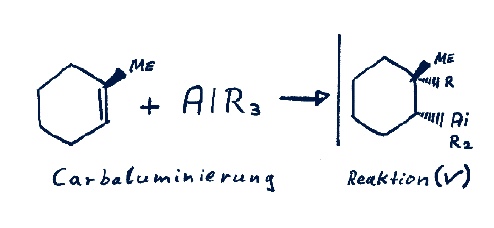 ME
+ AlR3
ME
R
Ai
R2
Carbaluminierung
Reaktion (V)